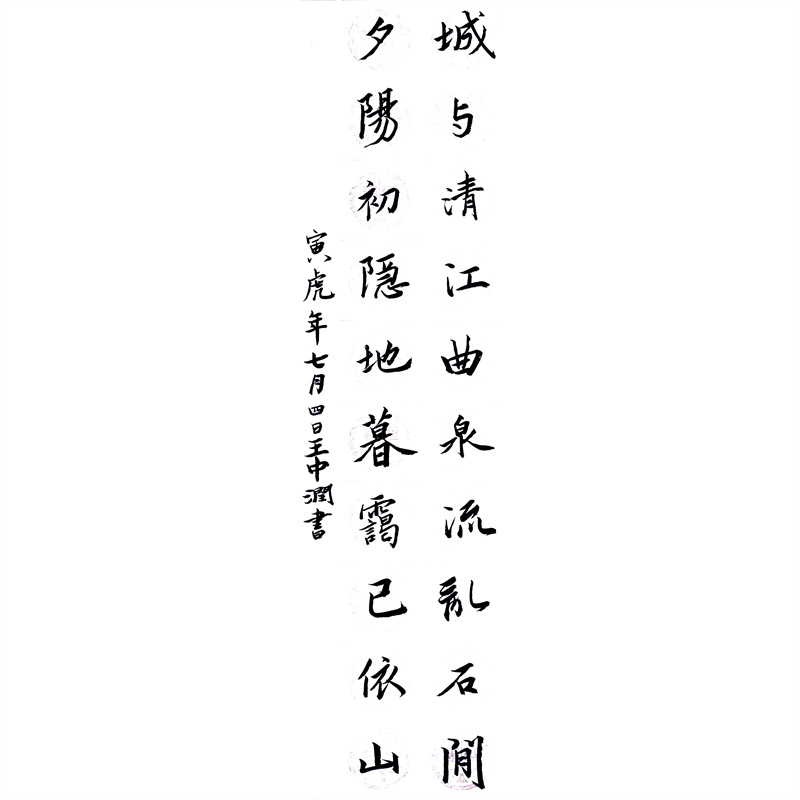 城与清江曲泉流乱石閒
夕陽初隠地暮靄已依山
寅虎年七月四日王中潤書